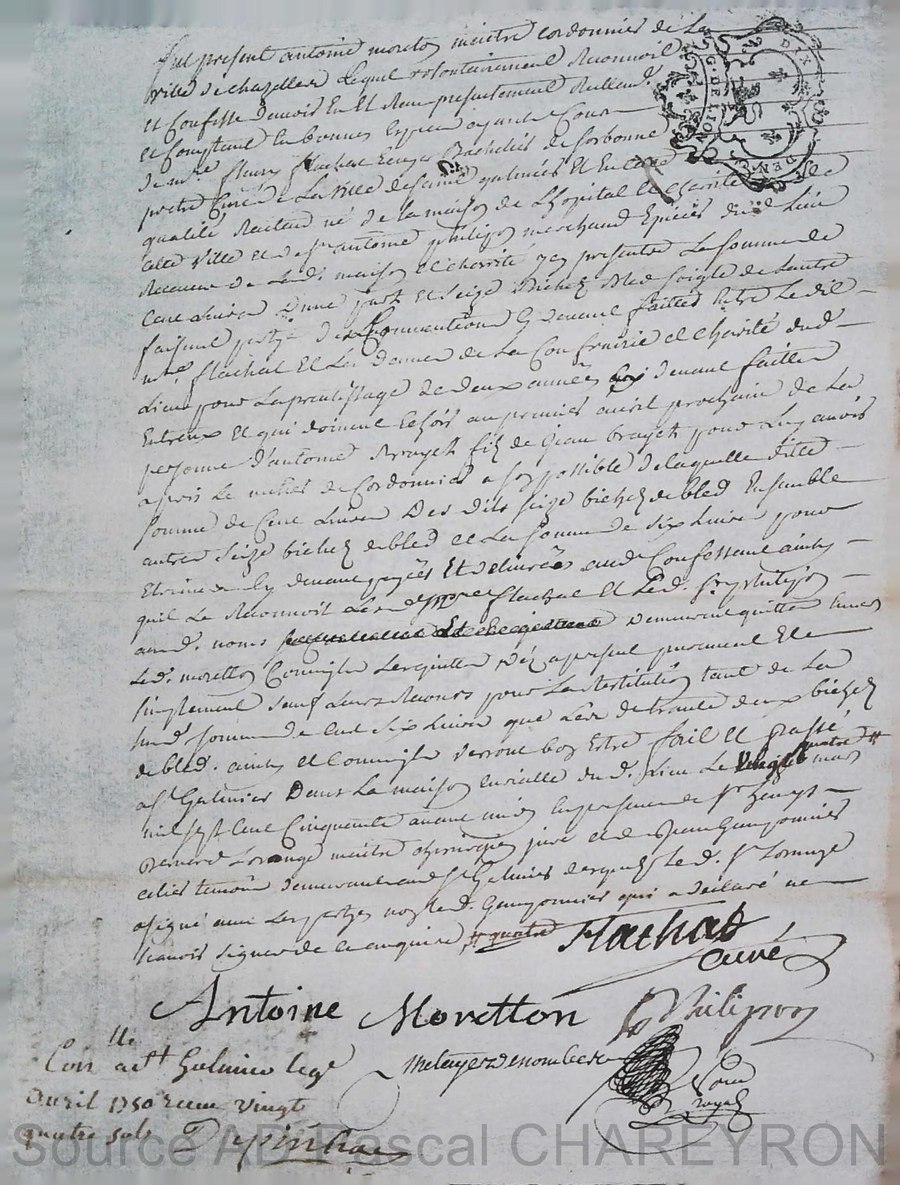 fut present antoine moreton meitre cordonnier de La
ville de chazelles Lequel volontairement Reconnoit
et Confesse davoir Eu Et Receu presentement Reellemt
et Comptant En bonnes Especes ayants Cours
de mre fleury flachat Bachelier de Sorbonne
pretre Curé de La ville de Saint galmier Et En cette
qualité Recteur né de la maison de Lhopital et charité de
cette ville Et de sr antoine philipon marchand Epicier dudt Lieu
Receveur de Ladt maison et charité yey presents La Somme de
Cent Livres Dune part Et Seize Bichets Bled Soigle de Lautre
faisant partye des Conventions cy devant faittes Entre Le dit
mre flachat Et Les dames de La Confrairie et charité dudt
Lieu pour Laprentissage de deux années cy devant faittes
Entreux Et qui doivent Echoir au premier avril prochain de La
personne d'antoine Brayet fils de jean brayet pour Luy avoir
apris Le metier de Cordonnier a son possible De laquelle ditte
Somme de Cent Livres Des dits Seize bichets debled Ensemble
autres Seize bichets debled et La Somme de Six Livres pour
Etrennes cy devant payées Et delivrées audt Confessant ainsy
quil Le Reconnoit Les d flachat Et Ledt Sr philipon
auxdt noms Demeurent quittes Envers
Ledt moretton Comme il Les quitte Dez a present purement Et
simplement Sauf Leurs Recours pour La Restitution tant de La
Susdt Somme de Cent Six Livres que Les de trente deux bichets
debled. ainsy et Comme ils verront bon Estre fait Et passé
a St Galmier Dans La maison curialle dudt. Lieu Le vingt quatre # mars
mil Sept Cent Cinquante avant midy En presence de Sr
Bernard Lorange meitre chirurgien juré et de Jean Guyonnier
temoins demeurants audt St Galmier Lesquels Le dt Sr Lorange
a signé avec Les partyes non Ledt. Guyonnier qui a declaré ne
Scavoir Signer de ce enquis # quatre Flachat
curé
Antoine Moretton Philipon
not
royal
Con a St Galmier Le 9e
avril 1750 Receu vingt
quatre Sols
Source AD Pascal CHAREYRON
G. DE LION
DIX
DEN